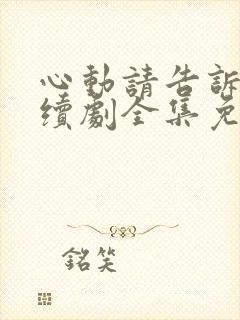 心動請告訴
續劇全集免
銘笑